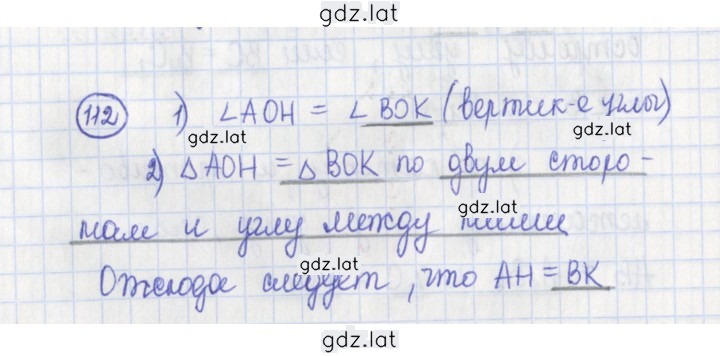 gdz.lat
112 1) ∠AOH = ∠ BOK (вертик-е углы)
gdz.lat
gdz.lat
2) △AOH = △ BOK по двум сторо-
gdz.lat
нам и углу между ними
gdz.lat
Отсюда следует, что AH = BK
gdz.lat